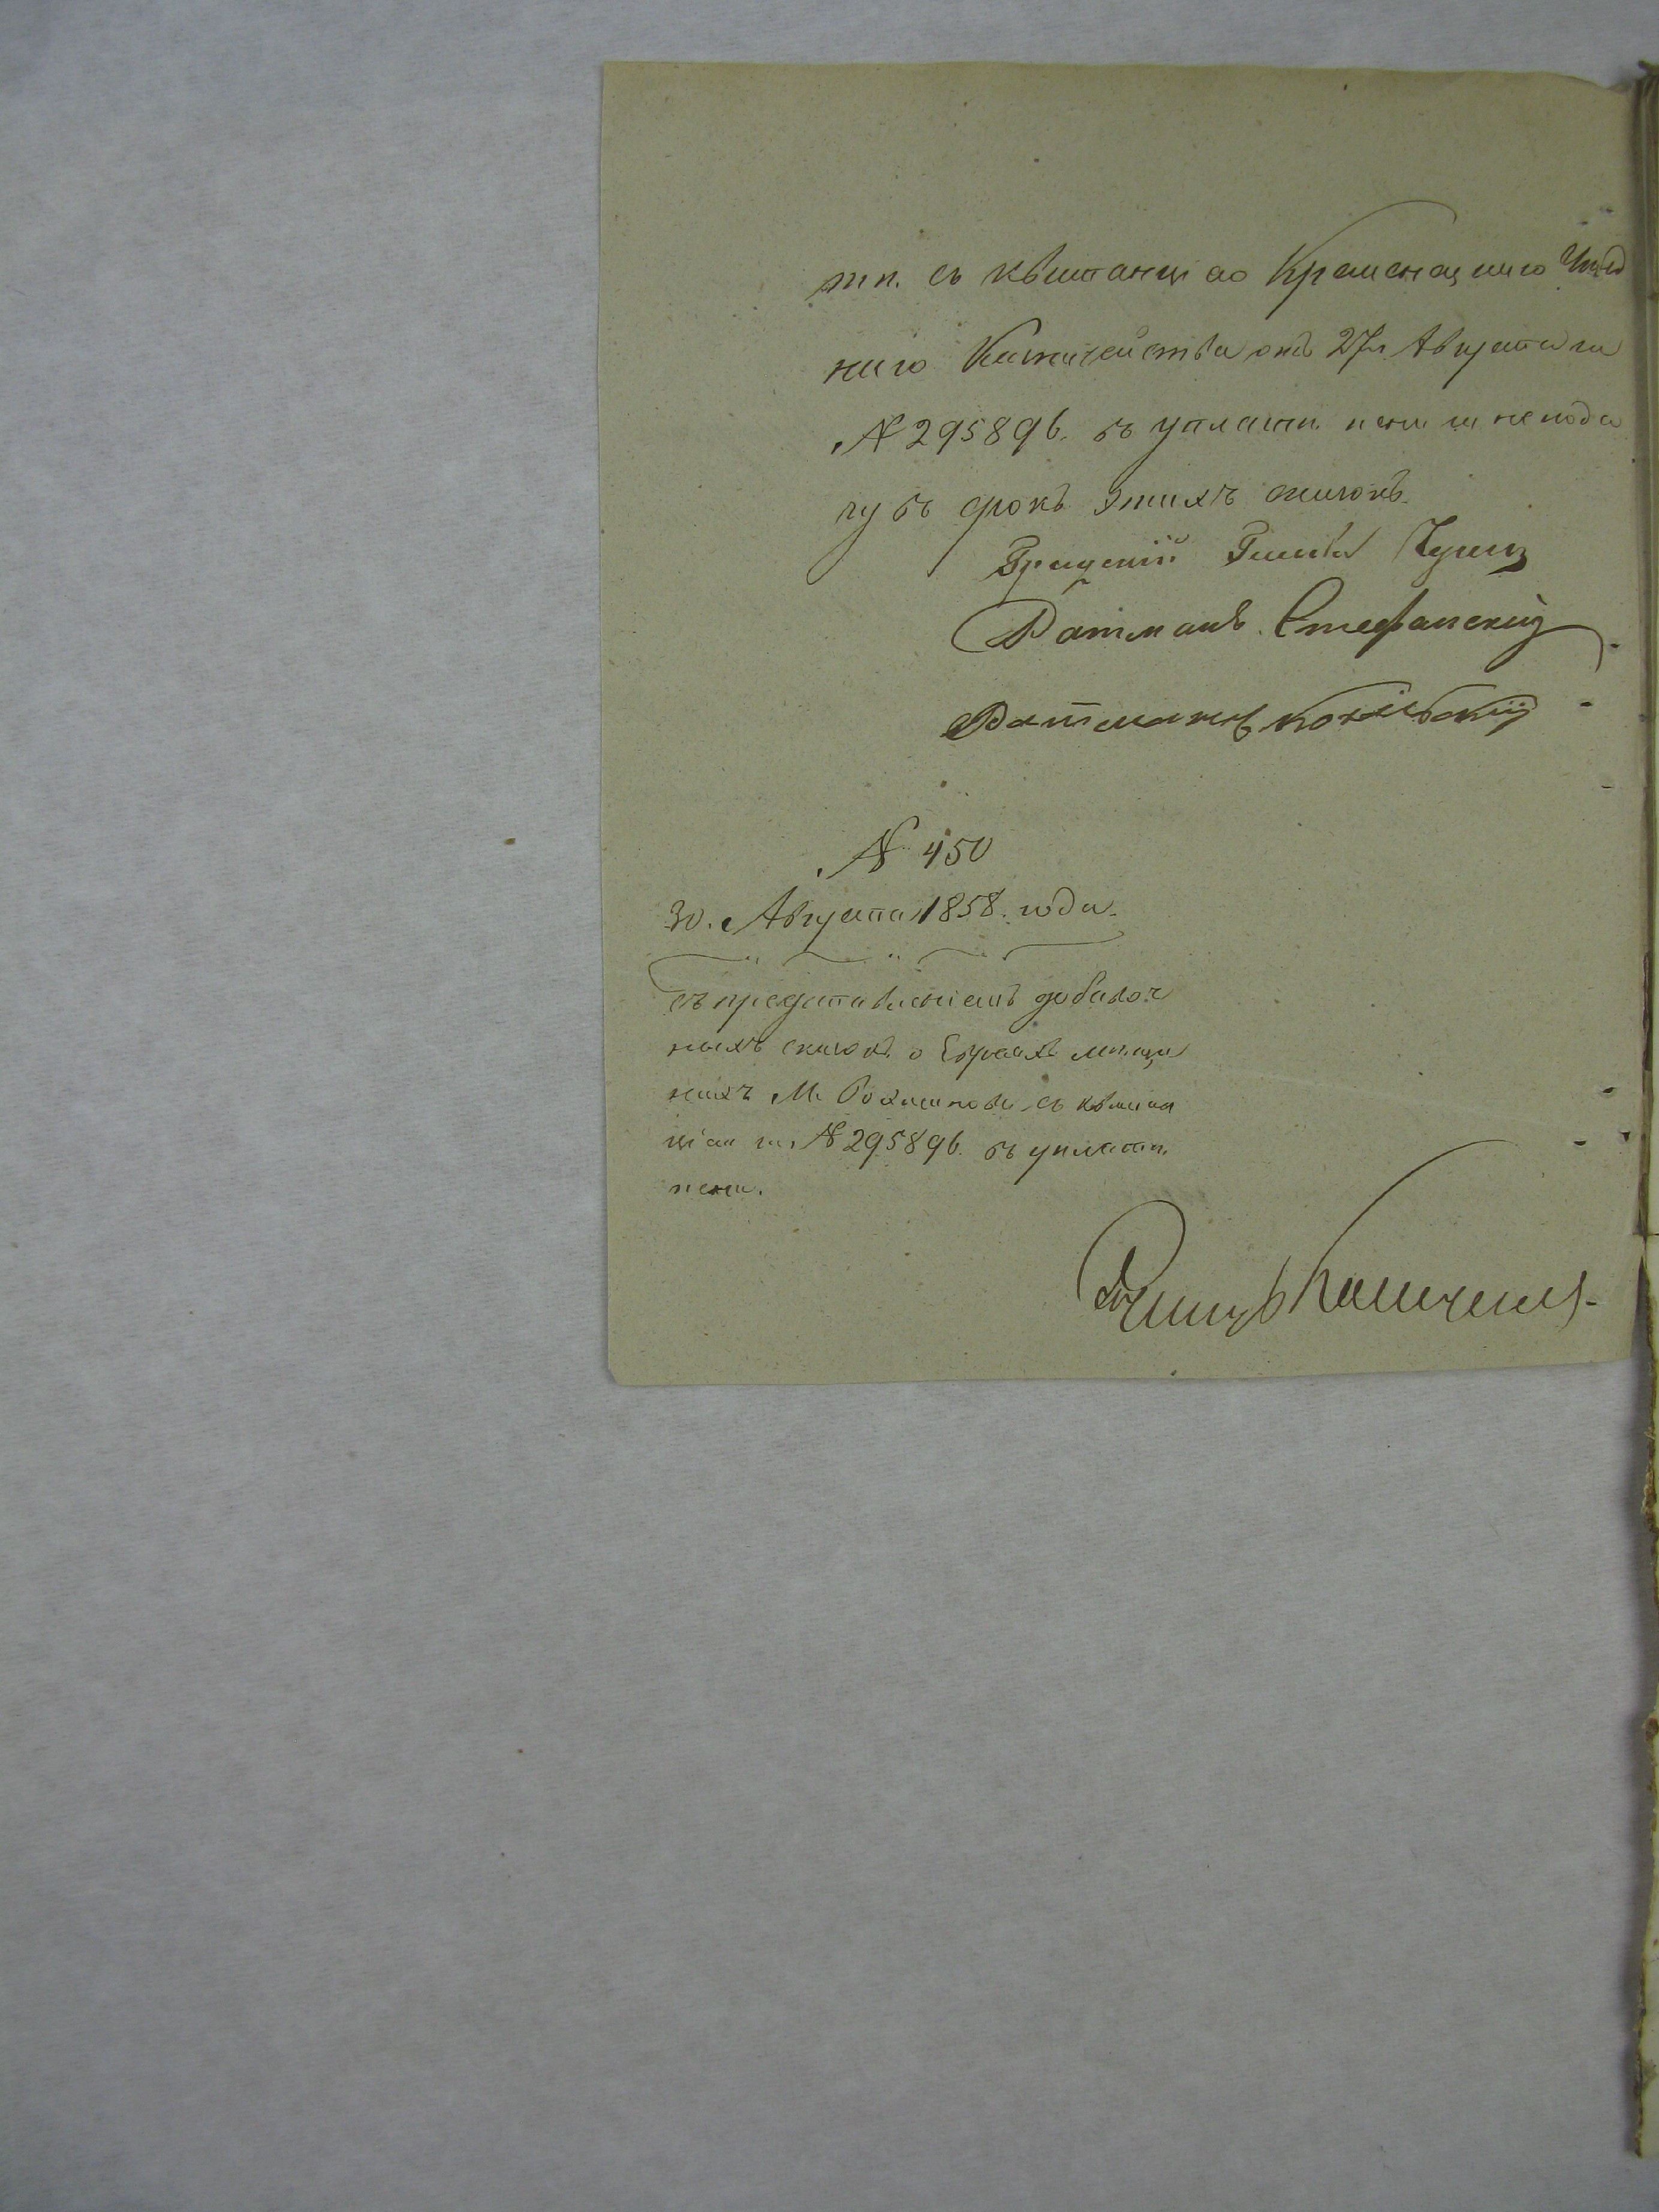 тѣ. съ квитанціею Кременецкаго Уѣзд
наго Казначейства отъ 27го Августа за
№ 295896. въ уплатѣ пени за непода
чу въ срокъ этихъ сказокъ.
Градскій Глава
Ратманъ. Стефанскій
Ратманъ
№ 450
30. Августа 1858. года.
съ представленіемъ добавоч
ныхъ сказокъ о Евреахъ мѣща
нахъ М. Рохманова съ квитан
ціею за № 295896. въ уплатѣ
пени.